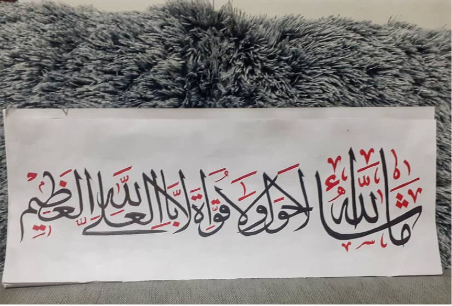 ما شاء الله لا حول ولا قوة الا بالله العلي العظيم